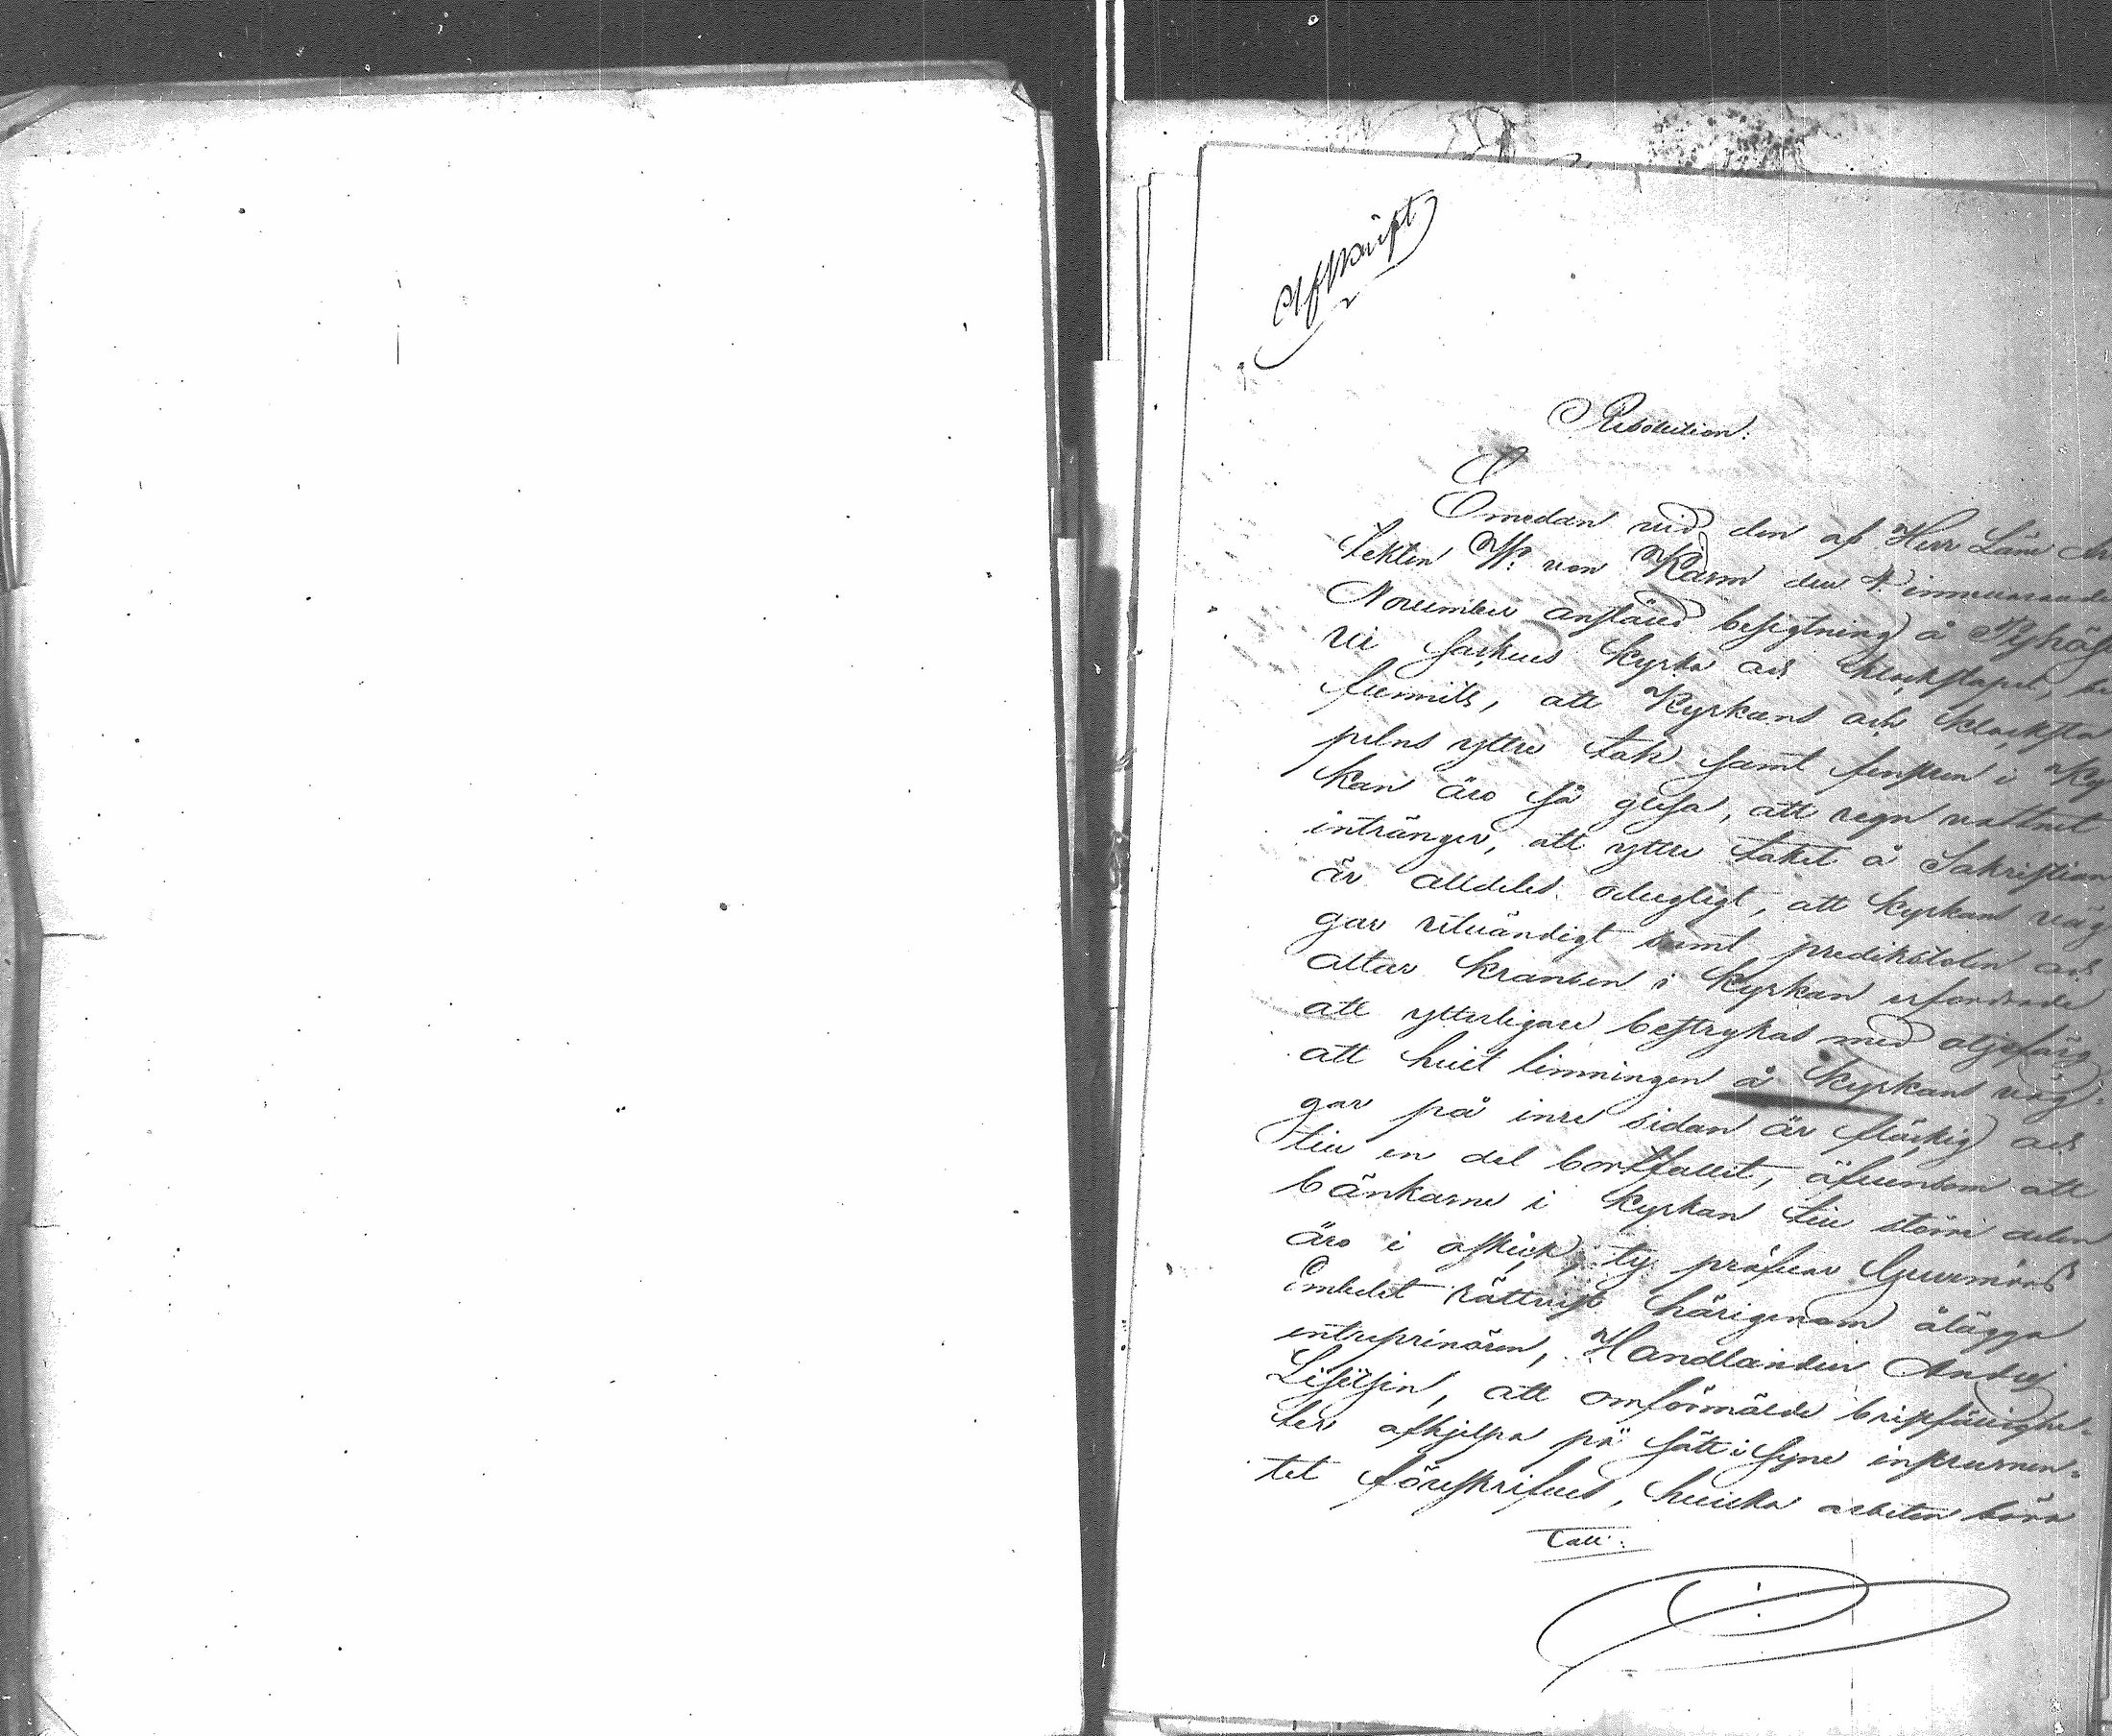 Afskrift
Resolution:
Emedan vid den af Herr Läne Ar
tekten W: von Karm den 4 innevarande
November anstäld besigtning å Pyhäjä
vi Saknes kyrka och klockstapel, be
funnits, att kyrkans och klocksta
pelns yttre tak samt fenstren i kyr
kan äro så glesa, att regn vattnet
intränger, att yttre taket å Sakristian
är alldeles odugligt, att kyrkans väg
gar utvändigt samt predikstolen och
altar kransen i kyrkan erfordrade
att ytterligare bestrykas med oljefärg
att hvit limningen å kyrkans väg=
gar på inre sidan är fläckig och
till en del bortfallit, äfvensom att
bänkarne i kyrkan till större delen
äro i oskick; ty pröfvar Guvernörs
Embetet rättvist härigenom ålägga
entreprenören, Handlanden Andrej
Lisitsin, att omförmälde bristfällighe=
ter afhjelpa på sätt i Syne instrumen=
tet föreskrifves, hvilka arbeten böra